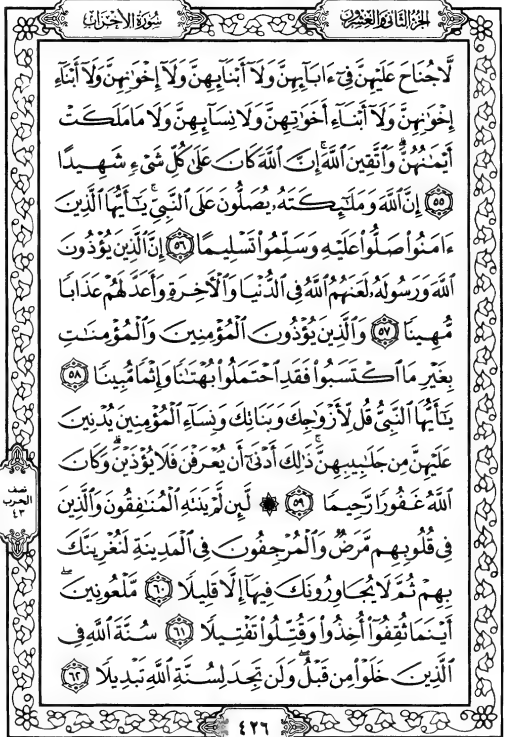 سُورَةُ الأَحْزَابِ
الجُزءُ الثَّانِي وَالعِشْرُونَ
لَّا جُنَاحَ عَلَيْهِنَّ فِىٓ ءَابَآئِهِنَّ وَلَآ أَبْنَآئِهِنَّ وَلَآ إِخْوَٰنِهِنَّ وَلَآ أَبْنَآءِ
إِخْوَٰنِهِنَّ وَلَآ أَبْنَآءِ أَخَوَٰتِهِنَّ وَلَا نِسَآئِهِنَّ وَلَا مَا مَلَكَتْ
أَيْمَٰنُهُنَّ ۗ وَٱتَّقِينَ ٱللَّهَ ۚ إِنَّ ٱللَّهَ كَانَ عَلَىٰ كُلِّ شَىْءٍ شَهِيدًا
﴿٥٥﴾ إِنَّ ٱللَّهَ وَمَلَٰٓئِكَتَهُۥ يُصَلُّونَ عَلَى ٱلنَّبِىِّ ۚ يَٰٓأَيُّهَا ٱلَّذِينَ
ءَامَنُوا۟ صَلُّوا۟ عَلَيْهِ وَسَلِّمُوا۟ تَسْلِيمًا ﴿٥٦﴾ إِنَّ ٱلَّذِينَ يُؤْذُونَ
ٱللَّهَ وَرَسُولَهُۥ لَعَنَهُمُ ٱللَّهُ فِى ٱلدُّنْيَا وَٱلْءَاخِرَةِ وَأَعَدَّ لَهُمْ عَذَابًا
مُّهِينًا ﴿٥٧﴾ وَٱلَّذِينَ يُؤْذُونَ ٱلْمُؤْمِنِينَ وَٱلْمُؤْمِنَٰتِ
بِغَيْرِ مَا ٱكْتَسَبُوا۟ فَقَدِ ٱحْتَمَلُوا۟ بُهْتَٰنًا وَإِثْمًا مُّبِينًا ﴿٥٨﴾
يَٰٓأَيُّهَا ٱلنَّبِىُّ قُل لِّأَزْوَٰجِكَ وَبَنَاتِكَ وَنِسَآءِ ٱلْمُؤْمِنِينَ يُدْنِينَ
عَلَيْهِنَّ مِن جَلَٰبِيبِهِنَّ ۚ ذَٰلِكَ أَدْنَىٰٓ أَن يُعْرَفْنَ فَلَا يُؤْذَيْنَ ۗ وَكَانَ
ٱللَّهُ غَفُورًا رَّحِيمًا ﴿٥٩﴾ ۞ لَّئِن لَّمْ يَنتَهِ ٱلْمُنَٰفِقُونَ وَٱلَّذِينَ
فِى قُلُوبِهِم مَّرَضٌ وَٱلْمُرْجِفُونَ فِى ٱلْمَدِينَةِ لَنُغْرِيَنَّكَ
بِهِمْ ثُمَّ لَا يُجَاوِرُونَكَ فِيهَآ إِلَّا قَلِيلًا ﴿٦٠﴾ مَّلْعُونِينَ ۖ
أَيْنَمَا ثُقِفُوٓا۟ أُخِذُوا۟ وَقُتِّلُوا۟ تَقْتِيلًا ﴿٦١﴾ سُنَّةَ ٱللَّهِ فِى
ٱلَّذِينَ خَلَوْا۟ مِن قَبْلُ ۖ وَلَن تَجِدَ لِسُنَّةِ ٱللَّهِ تَبْدِيلًا ﴿٦٢﴾
نصف
الحزب
٤٣
٤٢٦